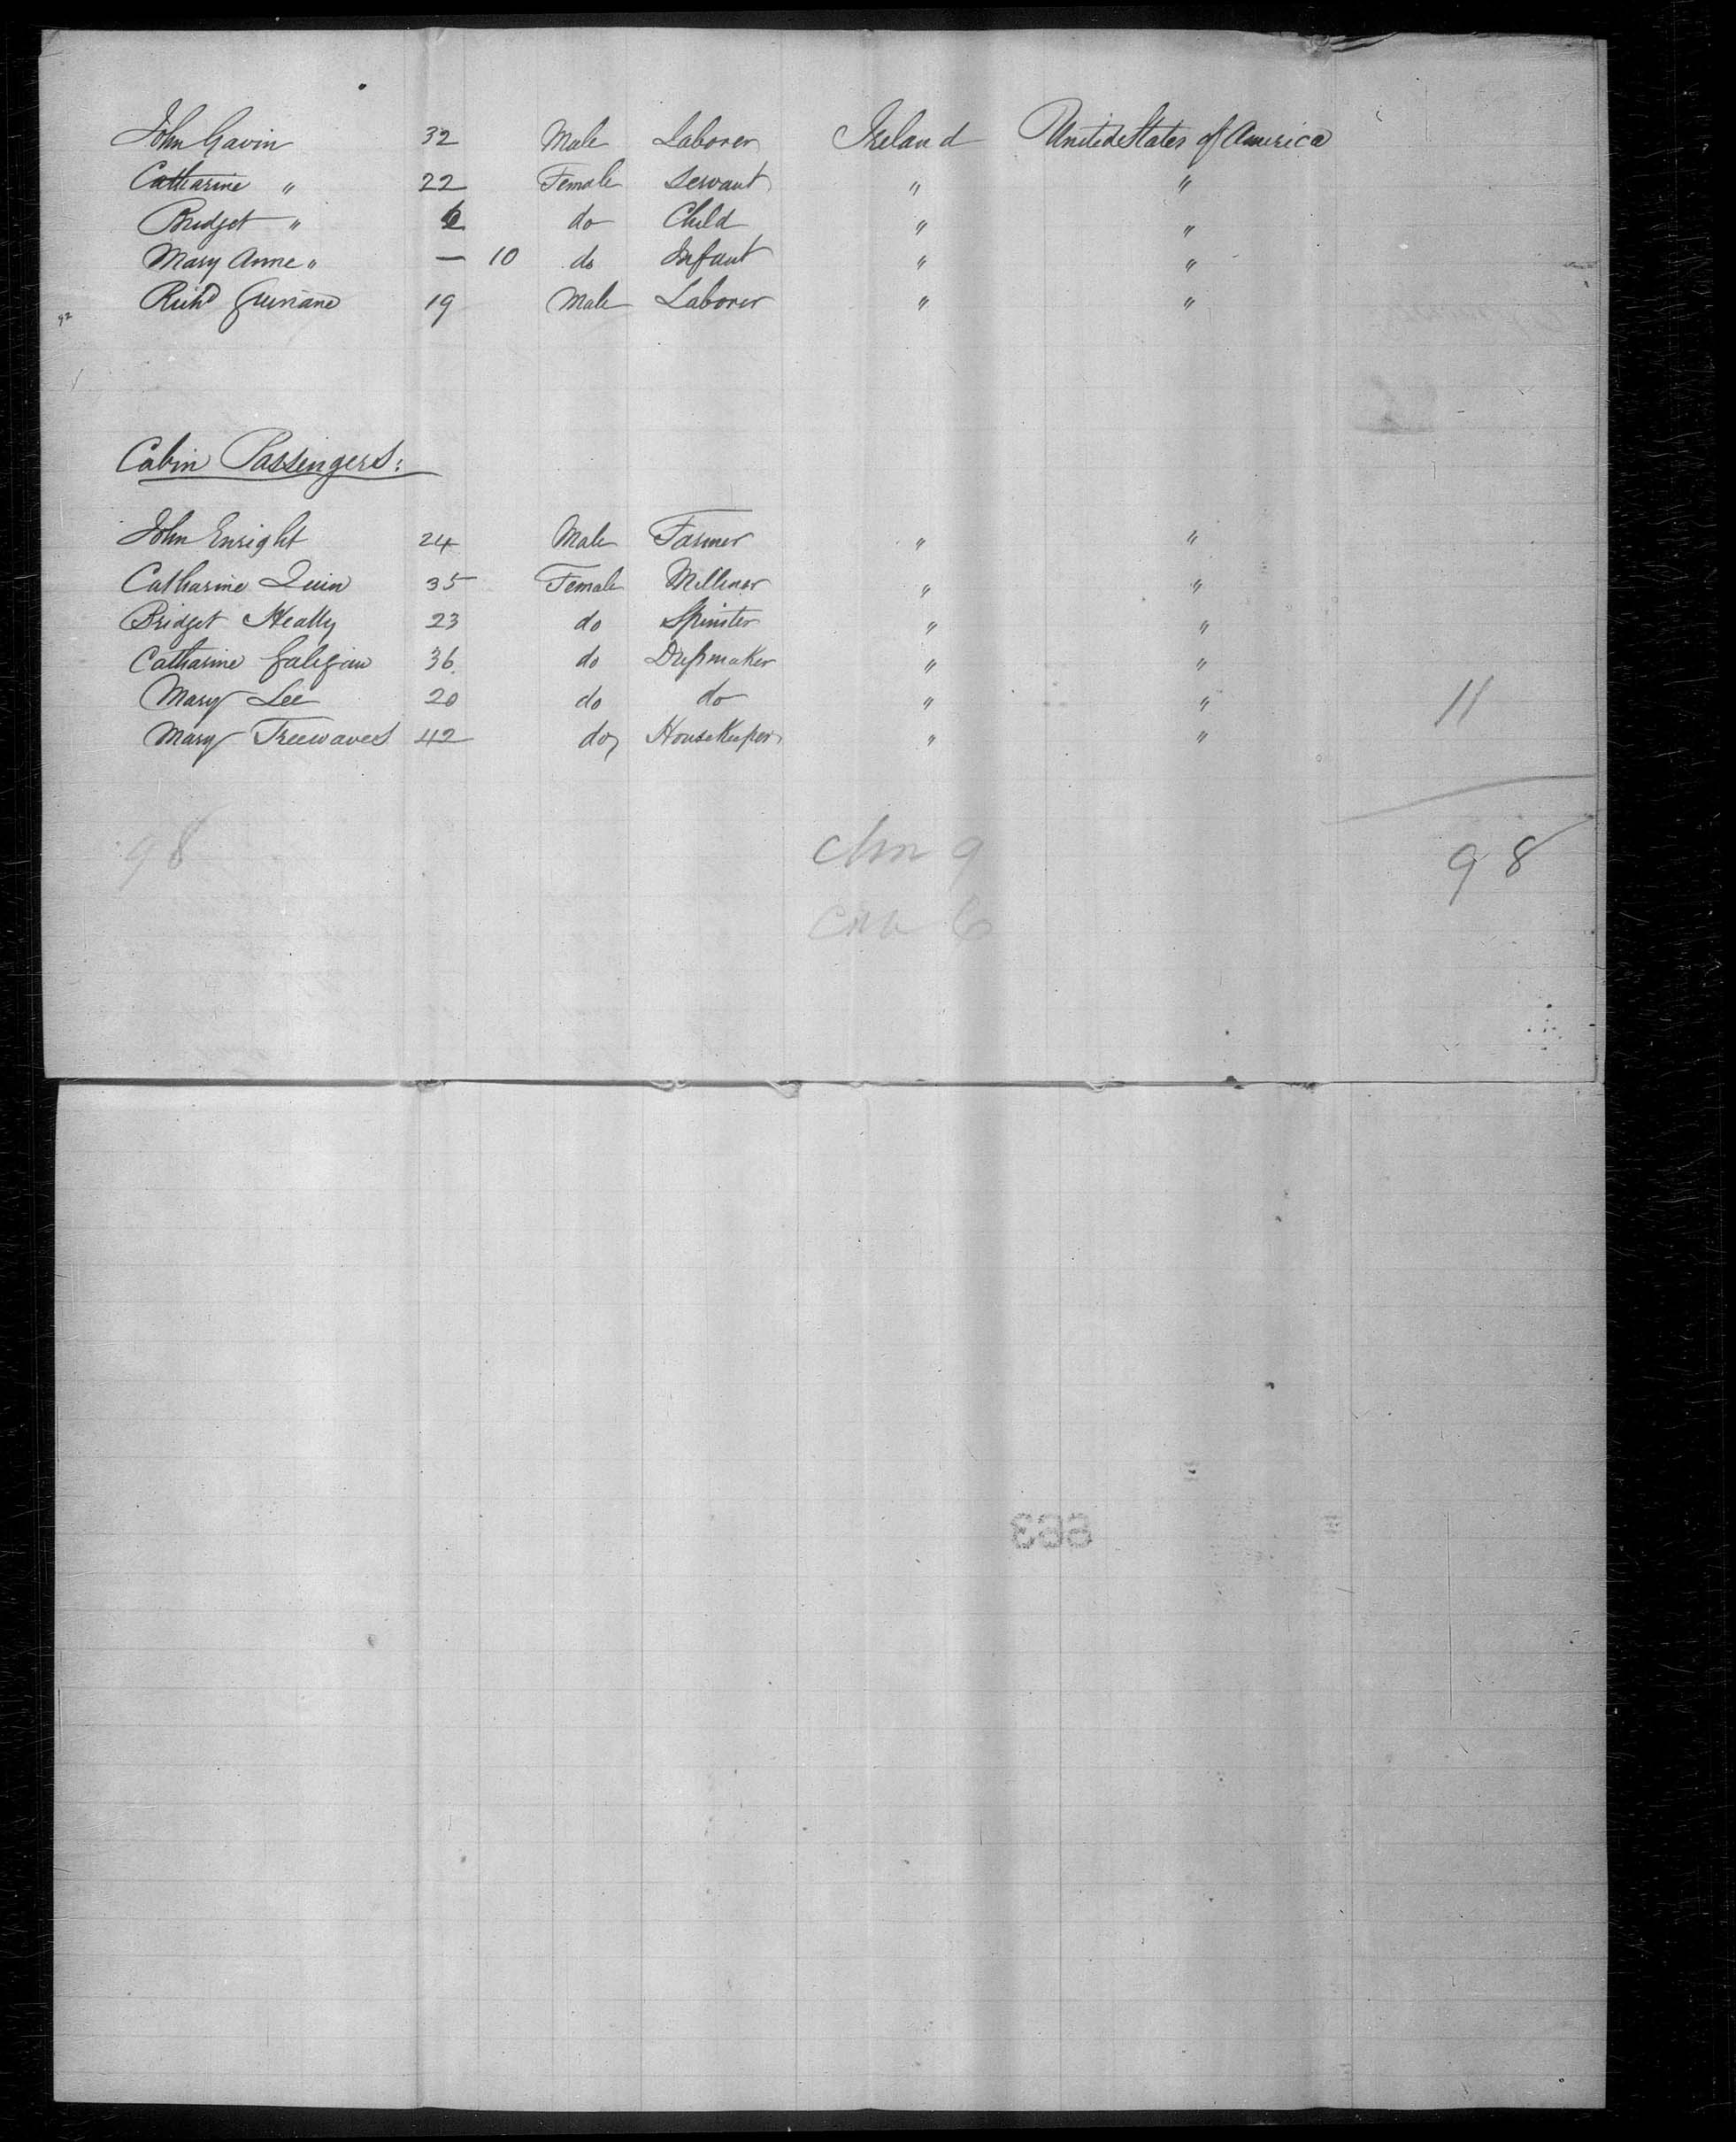 John Gavin 32 Male Laborer Ireland United States of America
Catharine " 22 Female Servant " "
Bridget " do Child " "
Mary Anne " — 10 do Infant " "
Richd Guinane 19 Male Laborer " "
92
Cabin Passengers:
John Enright 24 Male Farmer " "
Catharine Quin 35 Female Milliner " "
Bridget Healy 23 do Spinster " "
Catharine Galigan 36 do Dressmaker " "
Mary Lee 20 do do " " 11
Mary Treewaves 42 do Housekeeper " "
98 chn 9 98
663